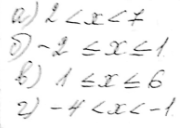 а) 2 < x < 7
б) -2 ≤ x ≤ 1
в) 1 ≤ x ≤ 6
г) -4 < x < -1